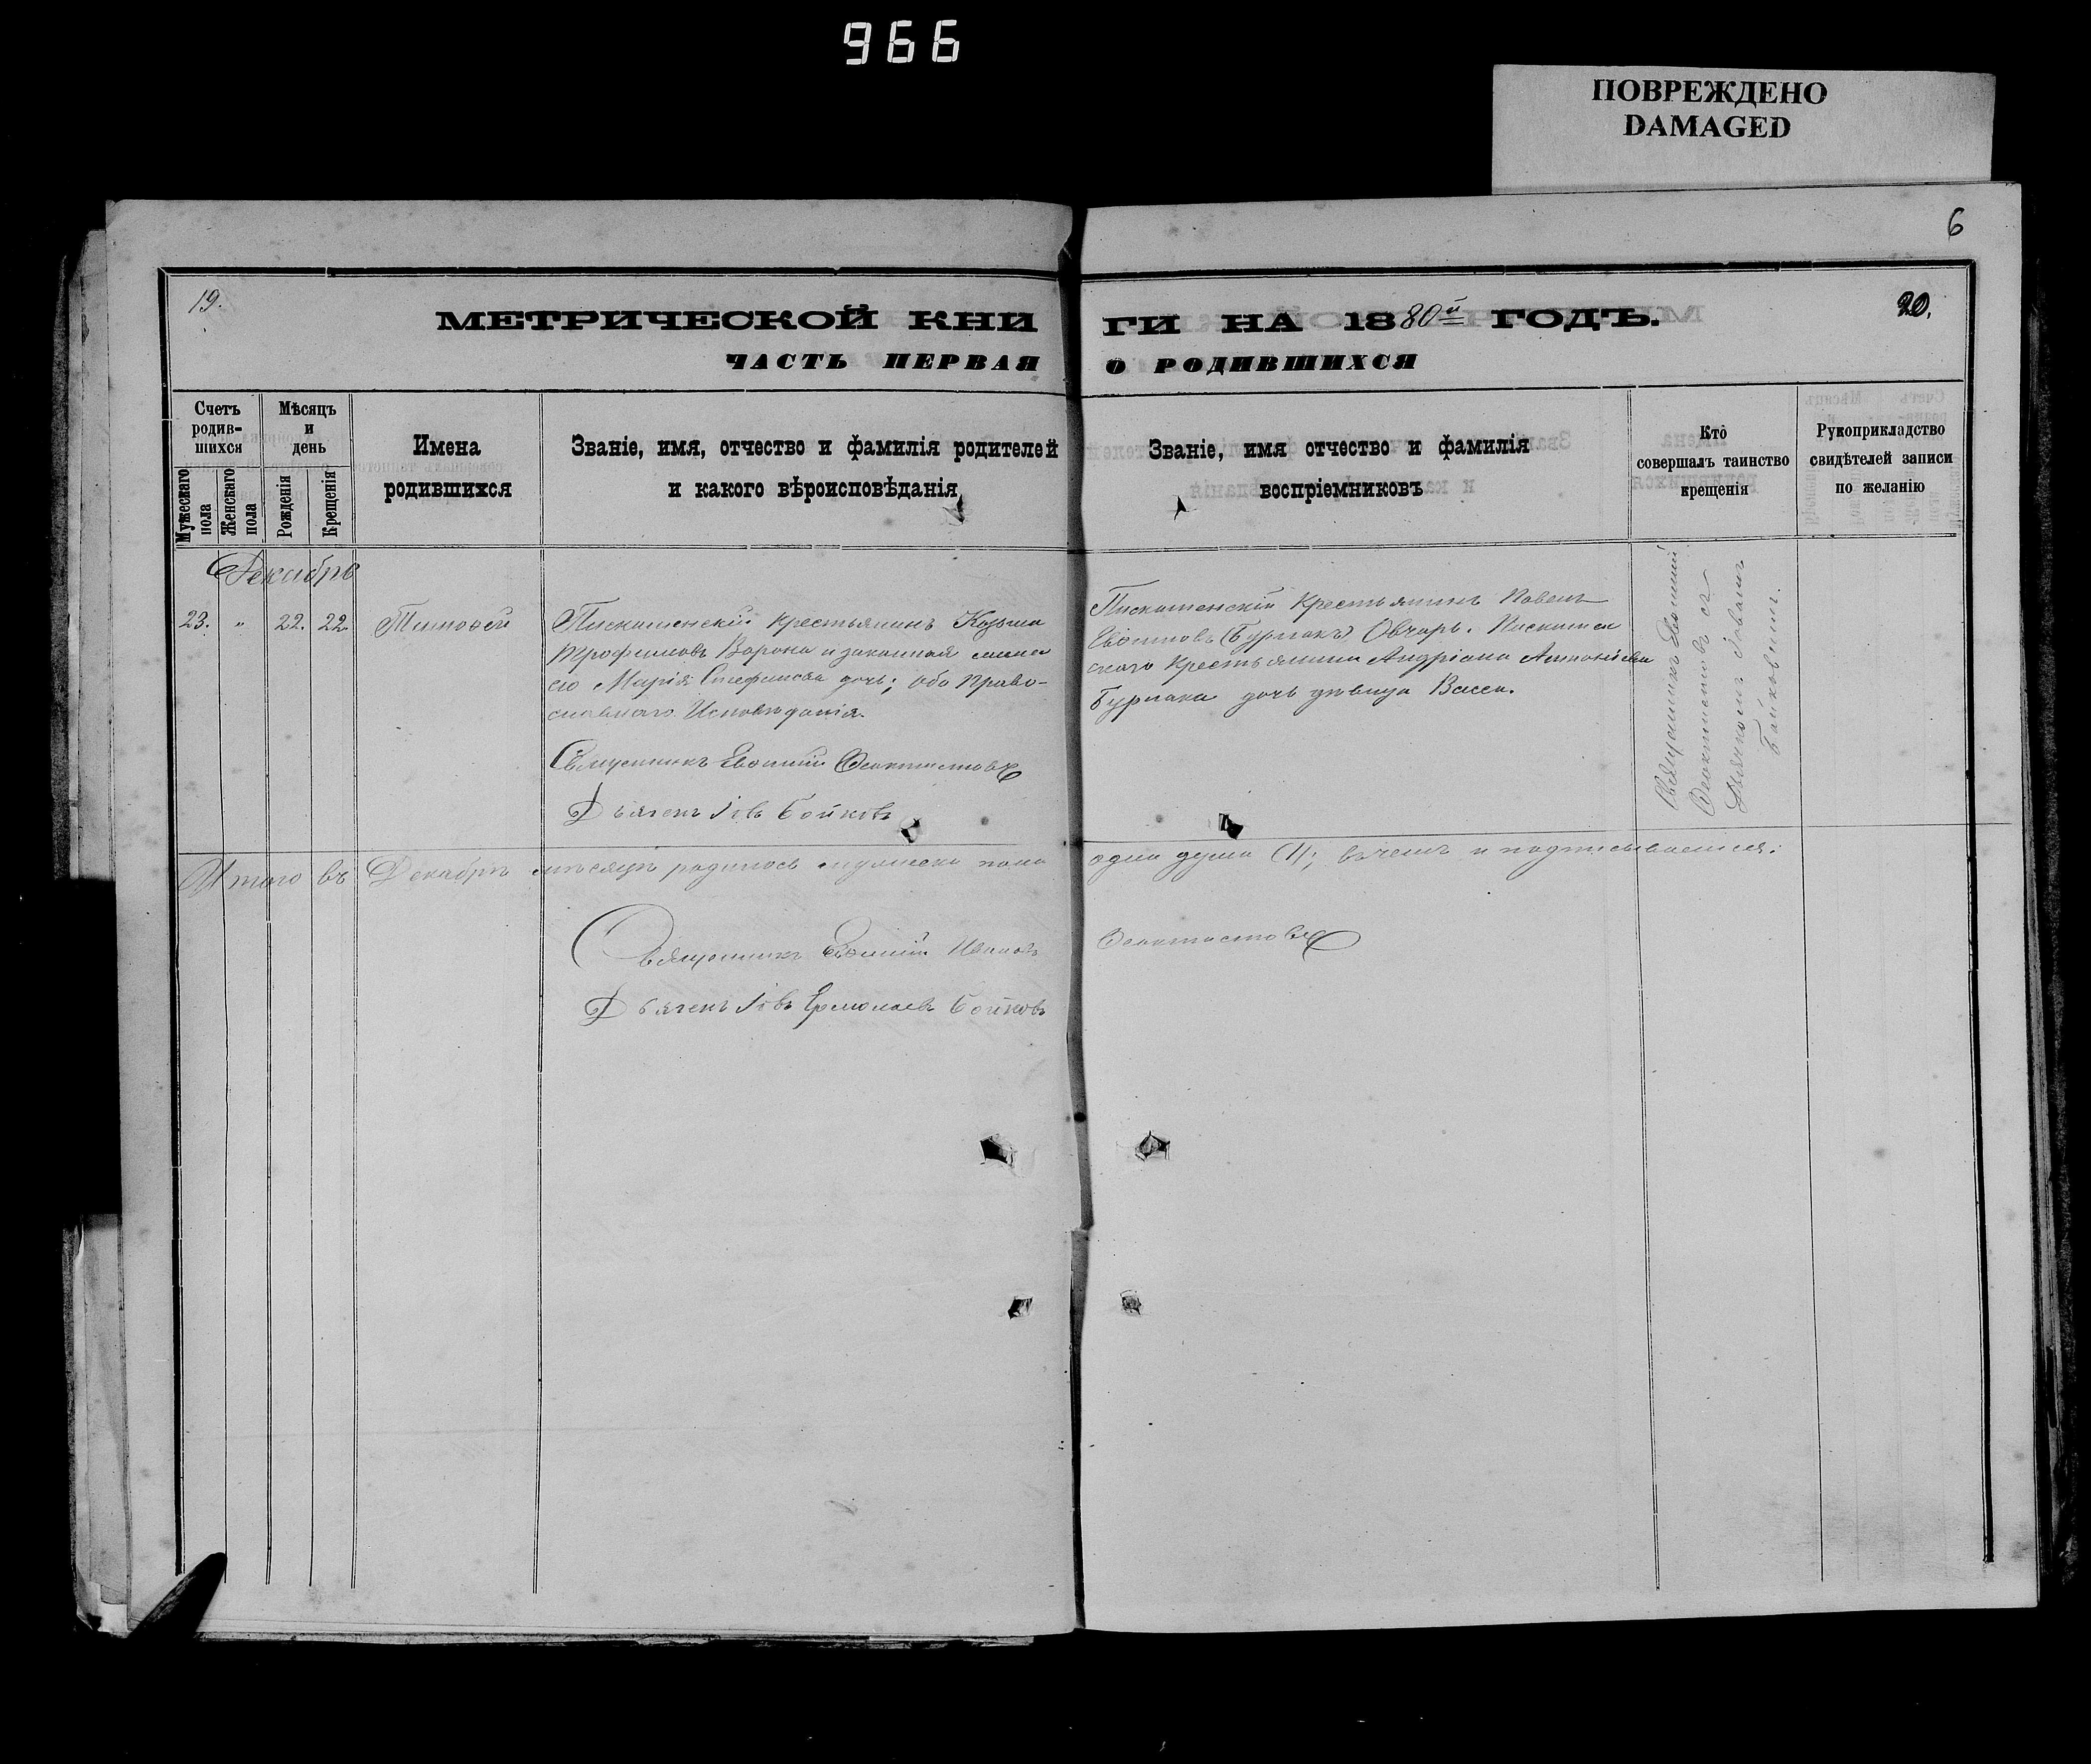 966
ПОВРЕЖДЕНО
DAMAGED
6
19.
МЕТРИЧЕСКОЙ КНИ
ГИ НА 1880й ГОДЪ.
20.
ЧАСТЬ ПЕРВАЯ
О РОДИВШИХСЯ
Счетъ
родив-
шихся
Мужескаго
пола
Женскаго
пола
Мѣсяцъ
и
день
Рожденія
Крещенія
Имена
родившихся
Званіе, имя, отчество и фамилія родителей
и какого вѣроисповѣданія
Званіе, имя отчество и фамилія
воспріемниковъ
Кто
совершалъ таинство
крещенія
Рукоприкладство
свидѣтелей записи
по желанію
Декабрь
23. " 22. 22. Тимоѳей
Пискошенскій крестьянинъ Козьма
Трофимовъ Ворона и законная жена
его Марія Стефанова дочь; оба Право-
славнаго Исповѣданія.
Священникъ Евѳимій Ѳеоктистовъ
Дьячекъ Іовъ Бойковъ
Пискошенскій Крестьянинъ Павелъ
Евѳимовъ (Бурлакъ) Овчаръ. Пискошен
скаго Крестьянина Андріана Антоніева
Бурлака дочь дѣвица Васса.
Священникъ Евѳимій
Ѳеоктистовъ съ
Дьячкомъ Іовомъ
Бойковымъ.
Итого въ Декабрѣ мѣсяцѣ родилось мужеска пола
одна душа (1); въ чемъ и подписываемся:
Священникъ Евѳимій Ивановъ
Ѳеоктистовъ
Дьячекъ Іовъ Ермолаевъ Бойковъ